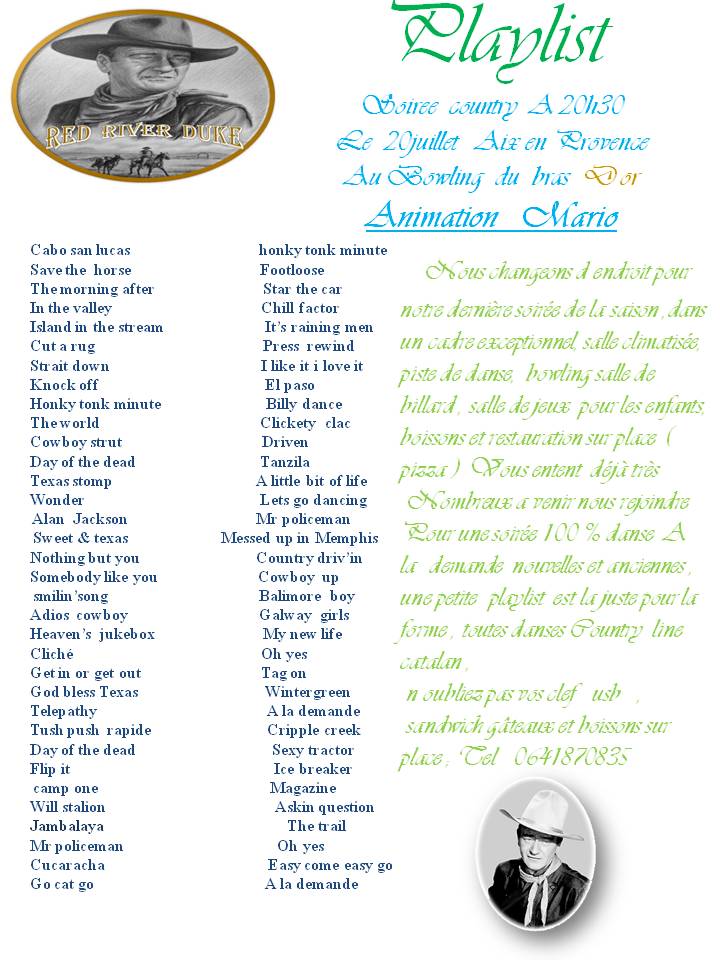 Playlist
RED RIVER DUKE
Soiree country A 20h30
Le 20juillet Aix en Provence
Au Bowling du bras D or
Animation Mario
Cabo san lucas
Save the horse
The morning after
In the valley
Island in the stream
Cut a rug
Strait down
Knock off
Honky tonk minute
The world
Cowboy strut
Day of the dead
Texas stomp
Wonder
Alan Jackson
Sweet & texas
Nothing but you
Somebody like you
smilin’song
Adios cowboy
Heaven’s jukebox
Cliché
Get in or get out
God bless Texas
Telepathy
Tush push rapide
Day of the dead
Flip it
camp one
Will stalion
Jambalaya
Mr policeman
Cucaracha
Go cat go
honky tonk minute
Footloose
Star the car
Chill factor
It’s raining men
Press rewind
I like it i love it
El paso
Billy dance
Clickety clac
Driven
Tanzila
A little bit of life
Lets go dancing
Mr policeman
Messed up in Memphis
Country driv’in
Cowboy up
Balimore boy
Galway girls
My new life
Oh yes
Tag on
Wintergreen
A la demande
Cripple creek
Sexy tractor
Ice breaker
Magazine
Askin question
The trail
Oh yes
Easy come easy go
A la demande
Nous changeons d endroit pour
notre dernière soirée de la saison , dans
un cadre exceptionnel, salle climatisée,
piste de danse, bowling salle de
billard , salle de jeux pour les enfants,
boissons et restauration sur place (
pizza ) Vous entent déjà très
Nombreux a venir nous rejoindre
Pour une soirée 100 % danse A
la demande nouvelles et anciennes ,
une petite playlist est la juste pour la
forme , toutes danses Country line
catalan ,
n oubliez pas vos clef usb ,
sandwich gâteaux et boissons sur
place ; Tel 0641870835